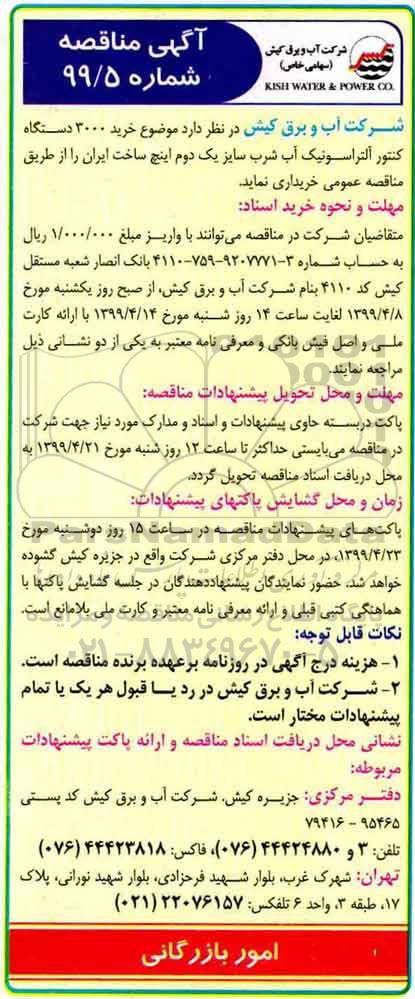 آگهی مناقصه
شماره ۹۹/۵
شرکت آب و برق کیش
(سهامی خاص)
KISH WATER & POWER CO.
شــرکت آب و برق کیش در نظر دارد موضوع خرید ۳۰۰۰ دستگاه
کنتور آلتراسـونیک آب شرب سایز یک دوم اینچ ساخت ایران را از طریق
مناقصه عمومی خریداری نماید.
مهلت و نحوه خرید اسناد:
متقاضیان شـرکت در مناقصه می‌توانند با واریـز مبلغ ۱/۰۰۰/۰۰۰ ریال
به حساب شماره ۳-۹۲۰۷۷۷۱-۷۵۹-۴۱۱۰ بانک انصار شعبه مستقل
کیش کد ۴۱۱۰ بنام شرکت آب و برق کیش، از صبح روز یکشنبه مورخ
۱۳۹۹/۴/۸ لغایت ساعت ۱۴ روز شـنبه مورخ ۱۳۹۹/۴/۱۴ با ارائه کارت
ملـی و اصل فیش بانکی و معرفی نامه معتبر به یکی از دو نشـانی ذیل
مراجعه نمایند.
مهلت و محل تحویل پیشنهادات مناقصه:
پاکت دربسـته حاوی پیشنهادات و اسناد و مدارک مورد نیاز جهت شرکت
در مناقصه می‌بایستی حداکثر تا ساعت ۱۲ روز شنبه مورخ ۱۳۹۹/۴/۲۱ به
محل دریافت اسناد مناقصه تحویل گردد.
زمان و محل گشایش پاکتهای پیشنهادات:
پاکت‌هـای پیشـنهادات مناقصـه در سـاعت ۱۵ روز دوشـنبه مورخ
۱۳۹۹/۴/۲۳، در محل دفتر مرکزی شـرکت واقع در جزیره کیش گشوده
خواهد شد. حضور نمایندگان پیشنهاددهندگان در جلسه گشایش پاکتها با
هماهنگی کتبی قبلی و ارائه معرفی نامه معتبر و کارت ملی بلامانع است.
نکات قابل توجه:
۱- هزینه درج آگهی در روزنامه برعهده برنده مناقصه است.
۲- شــرکت آب و برق کیش در رد یـا قبول هر یک یا تمام
پیشنهادات مختار است.
نشـانی محل دریافت اسناد مناقصه و ارائه پاکت پیشنهادات
مربوطه:
دفتـر مرکزی: جزیـره کیش. شـرکت آب و برق کیش کد پسـتی
۹۵۴۶۵ - ۷۹۴۱۶
تلفن: ۳ و ۴۴۴۲۴۸۸۰ (۰۷۶)، فاکس: ۴۴۴۲۳۸۱۸ (۰۷۶)
تهران: شهرک غرب، بلوار شـهید فرحزادی، بلوار شهید نورانی، پلاک
۱۷، طبقه ۳، واحد ۶ تلفکس: ۲۲۰۷۶۱۵۷ (۰۲۱)
امور بازرگانی
ParsNamadData
۰۲۱-۸۸۳۴۹۶۷۰-۵